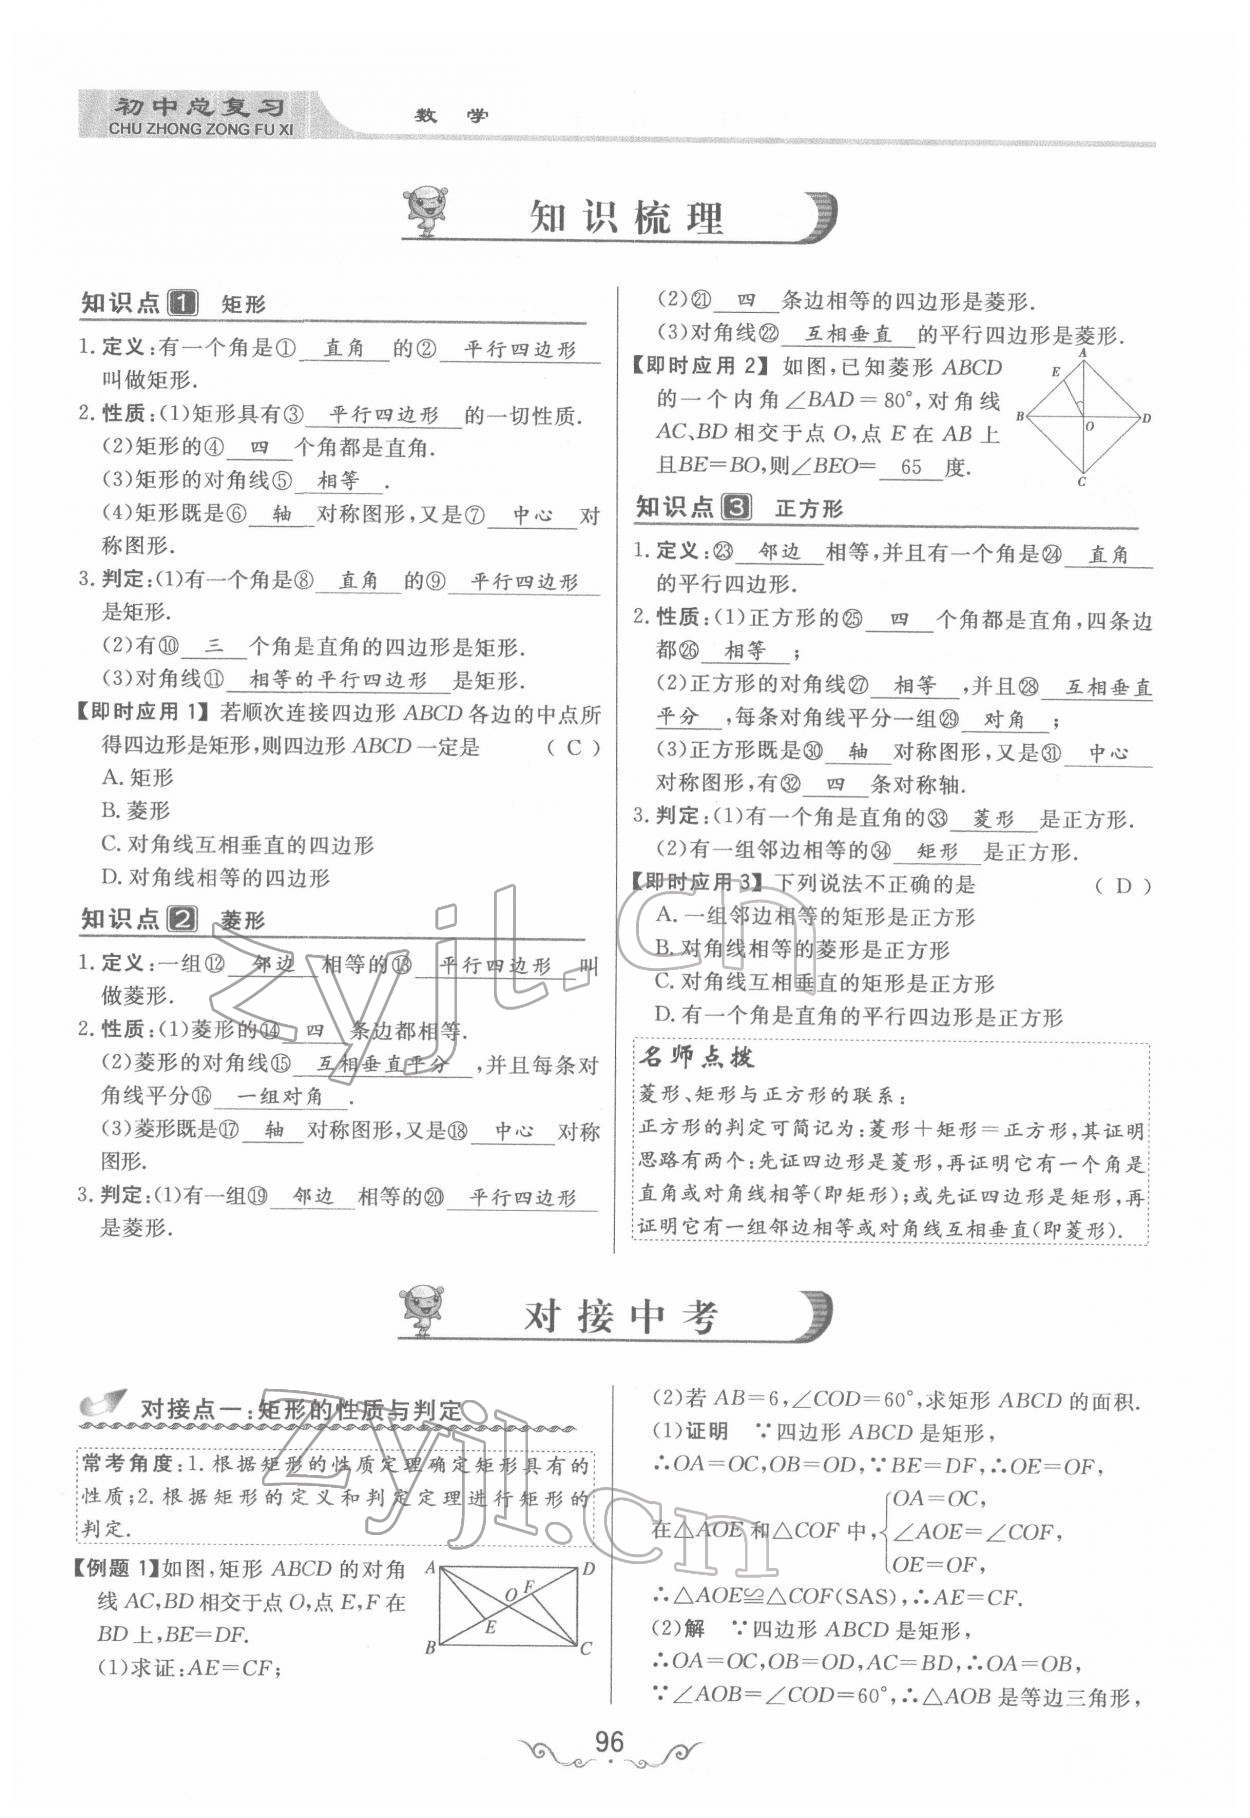 初中总复习
CHU ZHONG ZONG FU XI
数 学
知识梳理
知识点1 矩形
1. 定义:有一个角是① 直角 的② 平行四边形
叫做矩形.
2. 性质:(1)矩形具有③ 平行四边形 的一切性质.
(2)矩形的④ 四 个角都是直角.
(3)矩形的对角线⑤ 相等 .
(4)矩形既是⑥ 轴 对称图形,又是⑦ 中心 对
称图形.
3. 判定:(1)有一个角是⑧ 直角 的⑨ 平行四边形
是矩形.
(2)有⑩ 三 个角是直角的四边形是矩形.
(3)对角线⑪ 相等的平行四边形 是矩形.
【即时应用 1】 若顺次连接四边形 ABCD 各边的中点所
得四边形是矩形,则四边形 ABCD 一定是 ( C )
A. 矩形
B. 菱形
C. 对角线互相垂直的四边形
D. 对角线相等的四边形
知识点2 菱形
1. 定义:一组⑫ 邻边 相等的⑬ 平行四边形 叫
做菱形.
2. 性质:(1)菱形的⑭ 四 条边都相等.
(2)菱形的对角线⑮ 互相垂直平分 ,并且每条对
角线平分⑯ 一组对角 .
(3)菱形既是⑰ 轴 对称图形,又是⑱ 中心 对称
图形.
3. 判定:(1)有一组⑲ 邻边 相等的⑳ 平行四边形
是菱形.
(2)㉑ 四 条边相等的四边形是菱形.
(3)对角线㉒ 互相垂直 的平行四边形是菱形.
【即时应用 2】 如图,已知菱形 ABCD
的一个内角∠BAD=80°,对角线
AC,BD 相交于点 O,点 E 在 AB 上
且BE=BO,则∠BEO= 65 度.
A
E
B
O
D
C
知识点3 正方形
1. 定义:㉓ 邻边 相等,并且有一个角是㉔ 直角
的平行四边形.
2. 性质:(1)正方形的㉕ 四 个角都是直角,四条边
都㉖ 相等 ;
(2)正方形的对角线㉗ 相等 ,并且㉘ 互相垂直
平分 ,每条对角线平分一组㉙ 对角 ;
(3)正方形既是㉚ 轴 对称图形,又是㉛ 中心
对称图形,有㉜ 四 条对称轴.
3. 判定:(1)有一个角是直角的㉝ 菱形 是正方形.
(2)有一组邻边相等的㉞ 矩形 是正方形.
【即时应用 3】 下列说法不正确的是 ( D )
A. 一组邻边相等的矩形是正方形
B. 对角线相等的菱形是正方形
C. 对角线互相垂直的矩形是正方形
D. 有一个角是直角的平行四边形是正方形
名师点拨
菱形、矩形与正方形的联系:
正方形的判定可简记为:菱形+矩形=正方形,其证明
思路有两个:先证四边形是菱形,再证明它有一个角是
直角或对角线相等(即矩形);或先证四边形是矩形,再
证明它有一组邻边相等或对角线互相垂直(即菱形).
对接中考
对接点一:矩形的性质与判定
常考角度:1. 根据矩形的性质定理确定矩形具有的
性质;2. 根据矩形的定义和判定定理进行矩形的
判定.
【例题 1】如图,矩形 ABCD 的对角
线 AC,BD 相交于点 O,点 E,F 在
BD 上,BE=DF.
(1)求证:AE=CF;
A
D
O F
E
B
C
(2)若 AB=6,∠COD=60°,求矩形 ABCD 的面积.
(1)证明 ∵四边形 ABCD 是矩形,
∴OA=OC,OB=OD,∵BE=DF,∴OE=OF,
OA=OC,
在△AOE 和△COF 中, ∠AOE=∠COF,
OE=OF,
∴△AOE≌△COF(SAS),∴AE=CF.
(2)解 ∵四边形 ABCD 是矩形,
∴OA=OC,OB=OD,AC=BD,∴OA=OB,
∵∠AOB=∠COD=60°,∴△AOB 是等边三角形,
96
zyjl.cn
zyjl.cn